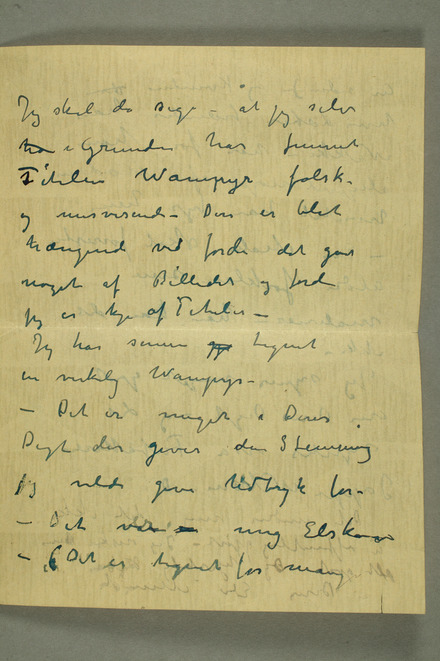 Jeg skal da sige – at jeg selv
har i Grunden har funnet
Titelen Wampyr falsk –
og misvisende – Den er blet
hængende ved fordi det gav
noget af Billedet og fordi
jeg er kje af Titeler –
Jeg har senere tegnet
en virkelig Wampyr –
– Det er meget i Deres
Digt der giver den Stemning
jeg vilde give Udtryk for –
– Det var – mig Elsk
– (Det er tegnet for mang